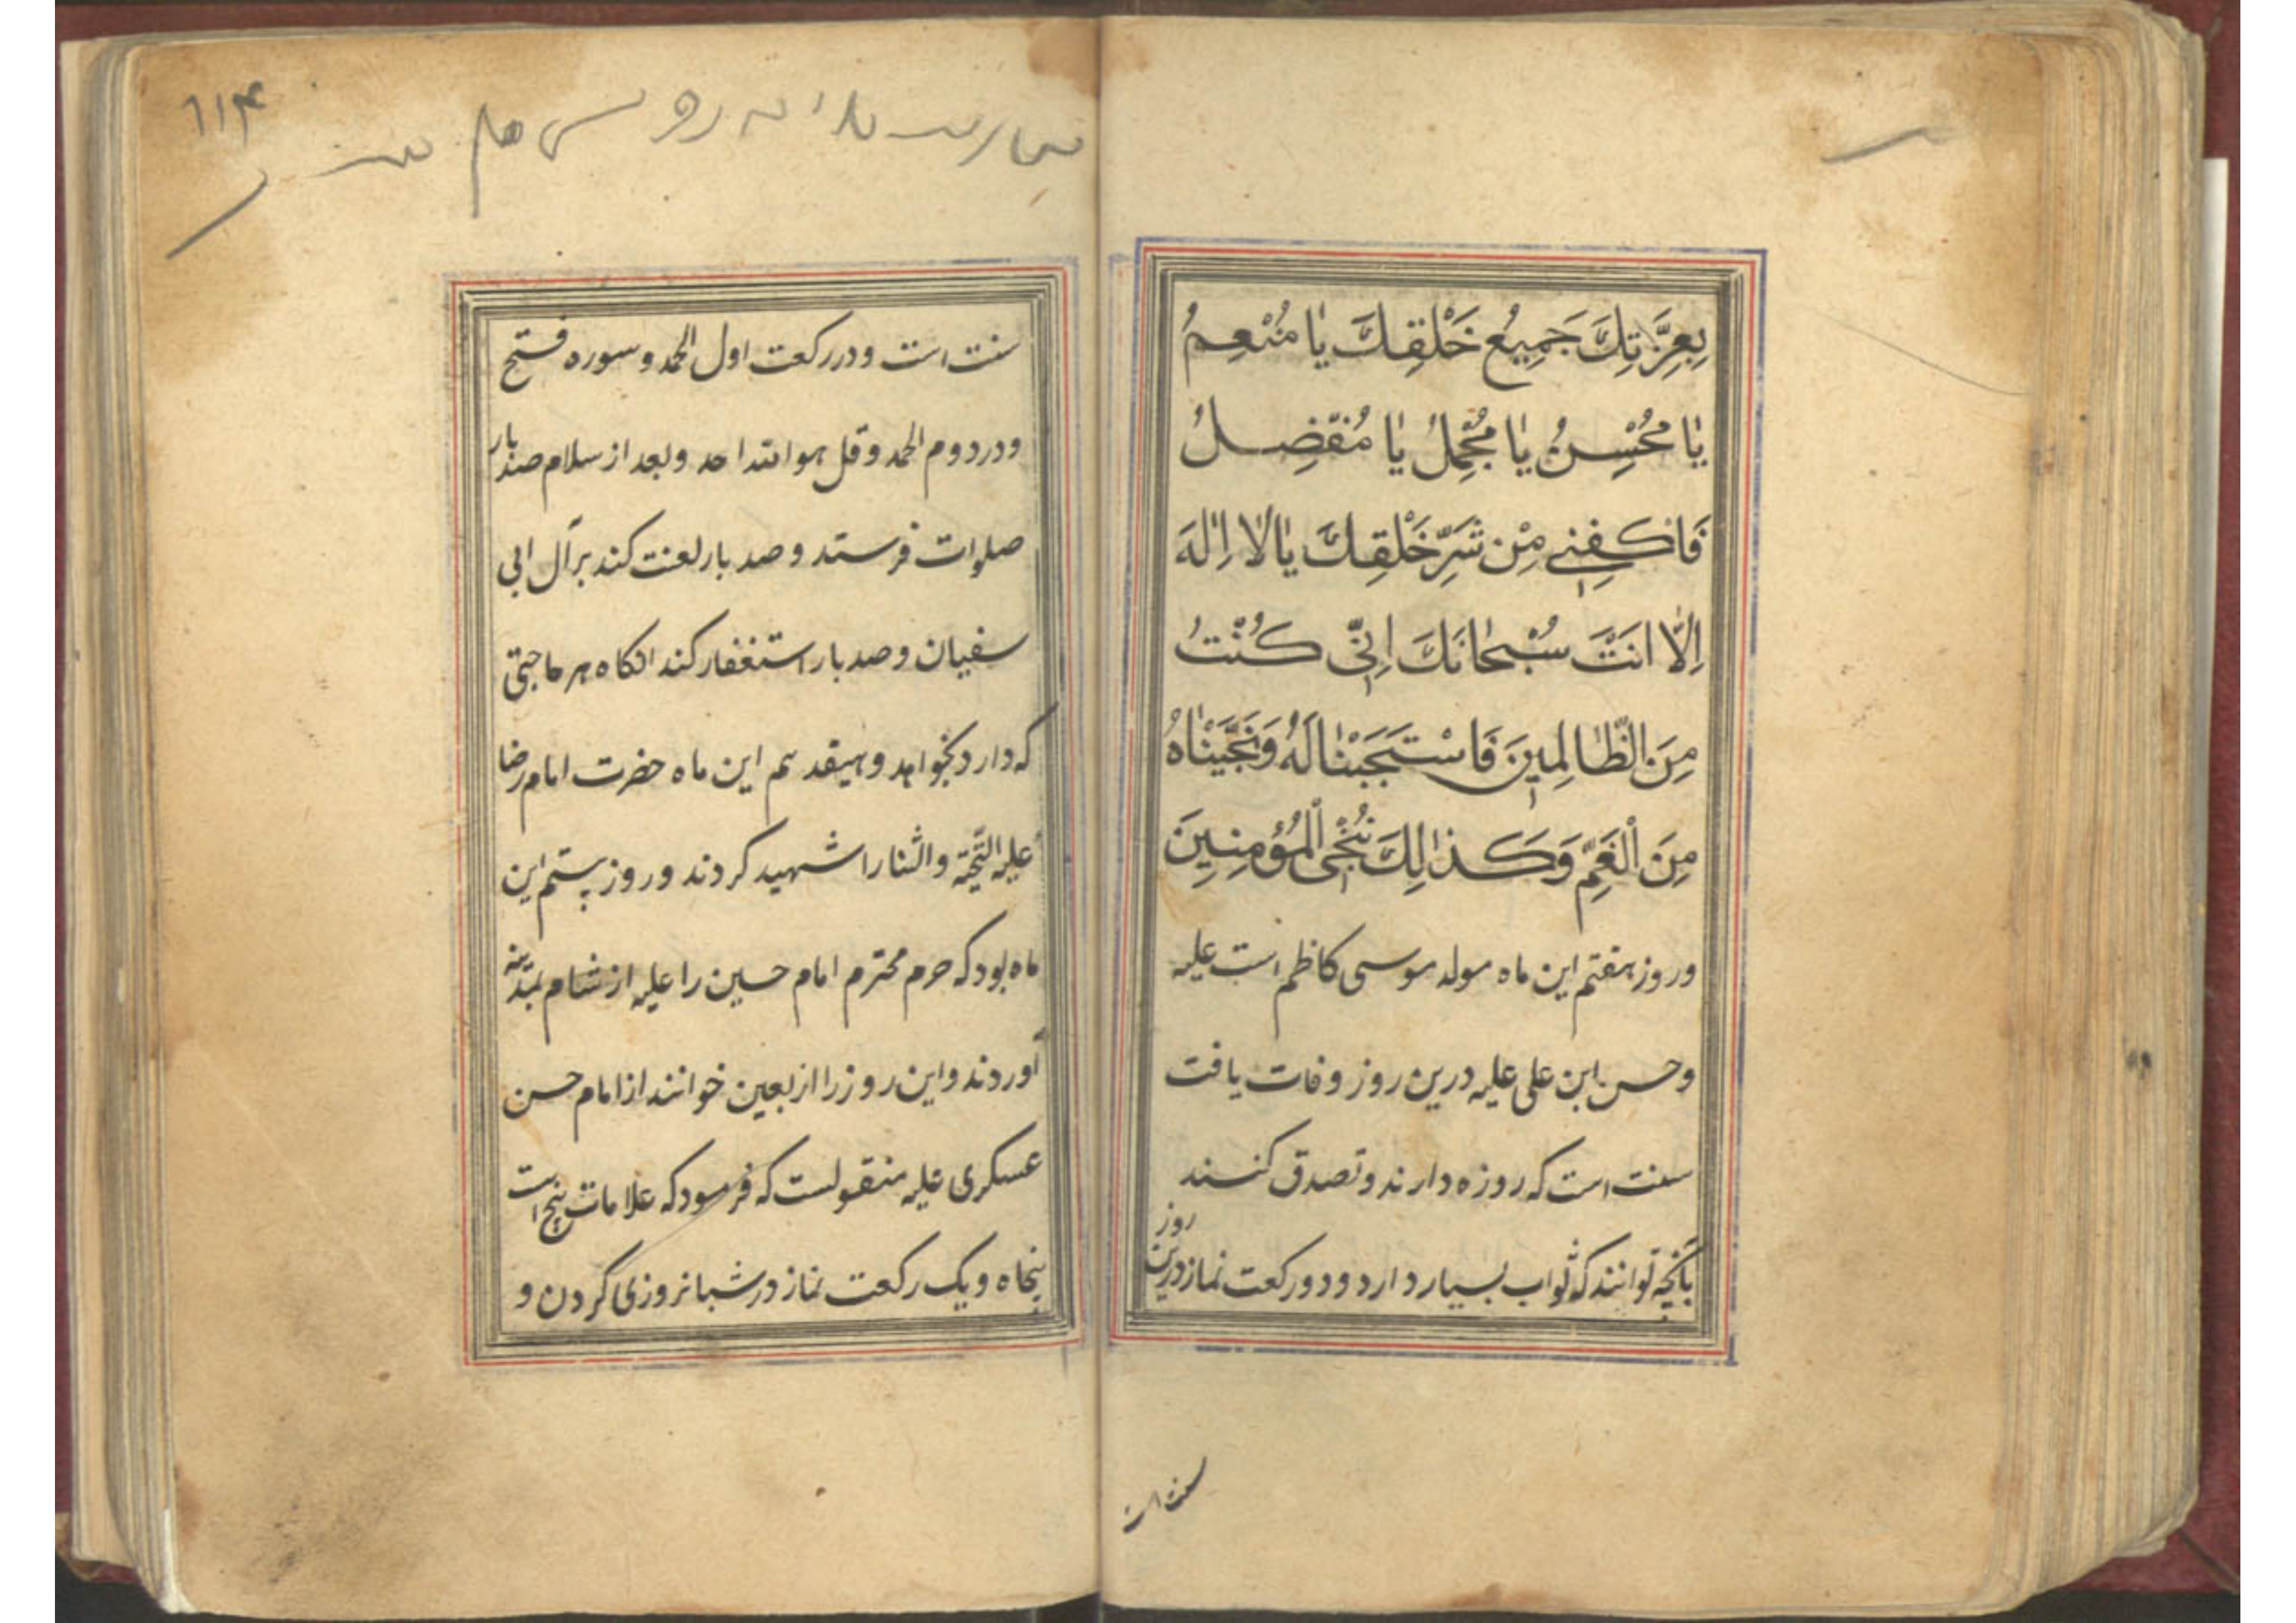 بِعِزَّتِكَ جَمِيعُ خَلْقِكَ يَا مُنْعِمُ
يَا مُحْسِنُ يَا مُجْمِلُ يَا مُفْضِلُ
فَاكْفِنِي مِنْ شَرِّ خَلْقِكَ يَا لَا اِلٰهَ
اِلَّا اَنْتَ سُبْحَانَكَ اِنِّي كُنْتُ
مِنَ الظَّالِمِينَ فَاسْتَجَبْنَا لَهُ وَنَجَّيْنَاهُ
مِنَ الْغَمِّ وَكَذَالِكَ نُنْجِي الْمُؤْمِنِينَ
وروز هفتم این ماه مولد موسی کاظم است علیه
وحسن ابن علی علیه درین روز وفات یافت
سنت است که روزه دارند و تصدق کنند
بآنچه توانند که ثواب بسیار دارد و دو رکعت نماز درین روز
سنت است
۱۱۴
سنت است و در رکعت اول الحمد و سوره فتح
و در دوم الحمد و قل هو الله احد و بعد از سلام صد بار
صلوات فرستد و صد بار لعنت کند بر آل ابی
سفیان و صد بار استغفار کند انکاه هر حاجتی
که دارد بخواهد و هیفدهم این ماه حضرت امام رضا
علیه التحیّة والثنا را شهید کردند و روز بیستم این
ماه بود که حرم محترم امام حسین را علیه از شام بمدینه
آوردند و این روز را اربعین خوانند از امام حسن
عسکری علیه منقولست که فرمود که علامات پنج است
پنجاه و یک رکعت نماز در شبانروزی کردن و